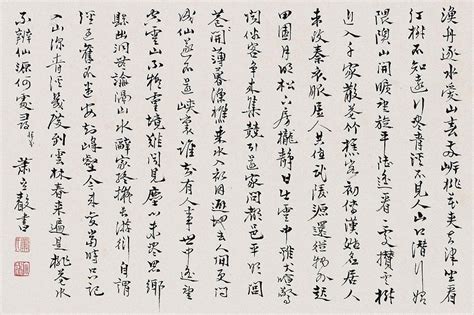 漁舟逐水愛山春兩岸桃花夾古津坐看
紅樹不知遠行盡青溪不見人山口潛行始
隈隩山開曠望旋平陸遙看一處攢雲樹
近入千家散花竹樵客初傳漢姓名居人
未改秦衣服居人共住武陵源還從物外起
田園月明松下房櫳靜日出雲中雞犬喧驚
聞俗客爭來集競引還家問都邑平明閭
巷掃花開薄暮漁樵乘水入初因避地去人間更問
成仙遂不還峽裏誰知有人事世中遙望
空雲山不疑靈境難聞見塵心未盡思鄉
縣出洞無論隔山水辭家終擬長游衍自謂
經過舊不迷安知峰壑今來變當時只記
入山深青溪幾度到雲林春來遍是桃花水
不辨仙源何處尋 書